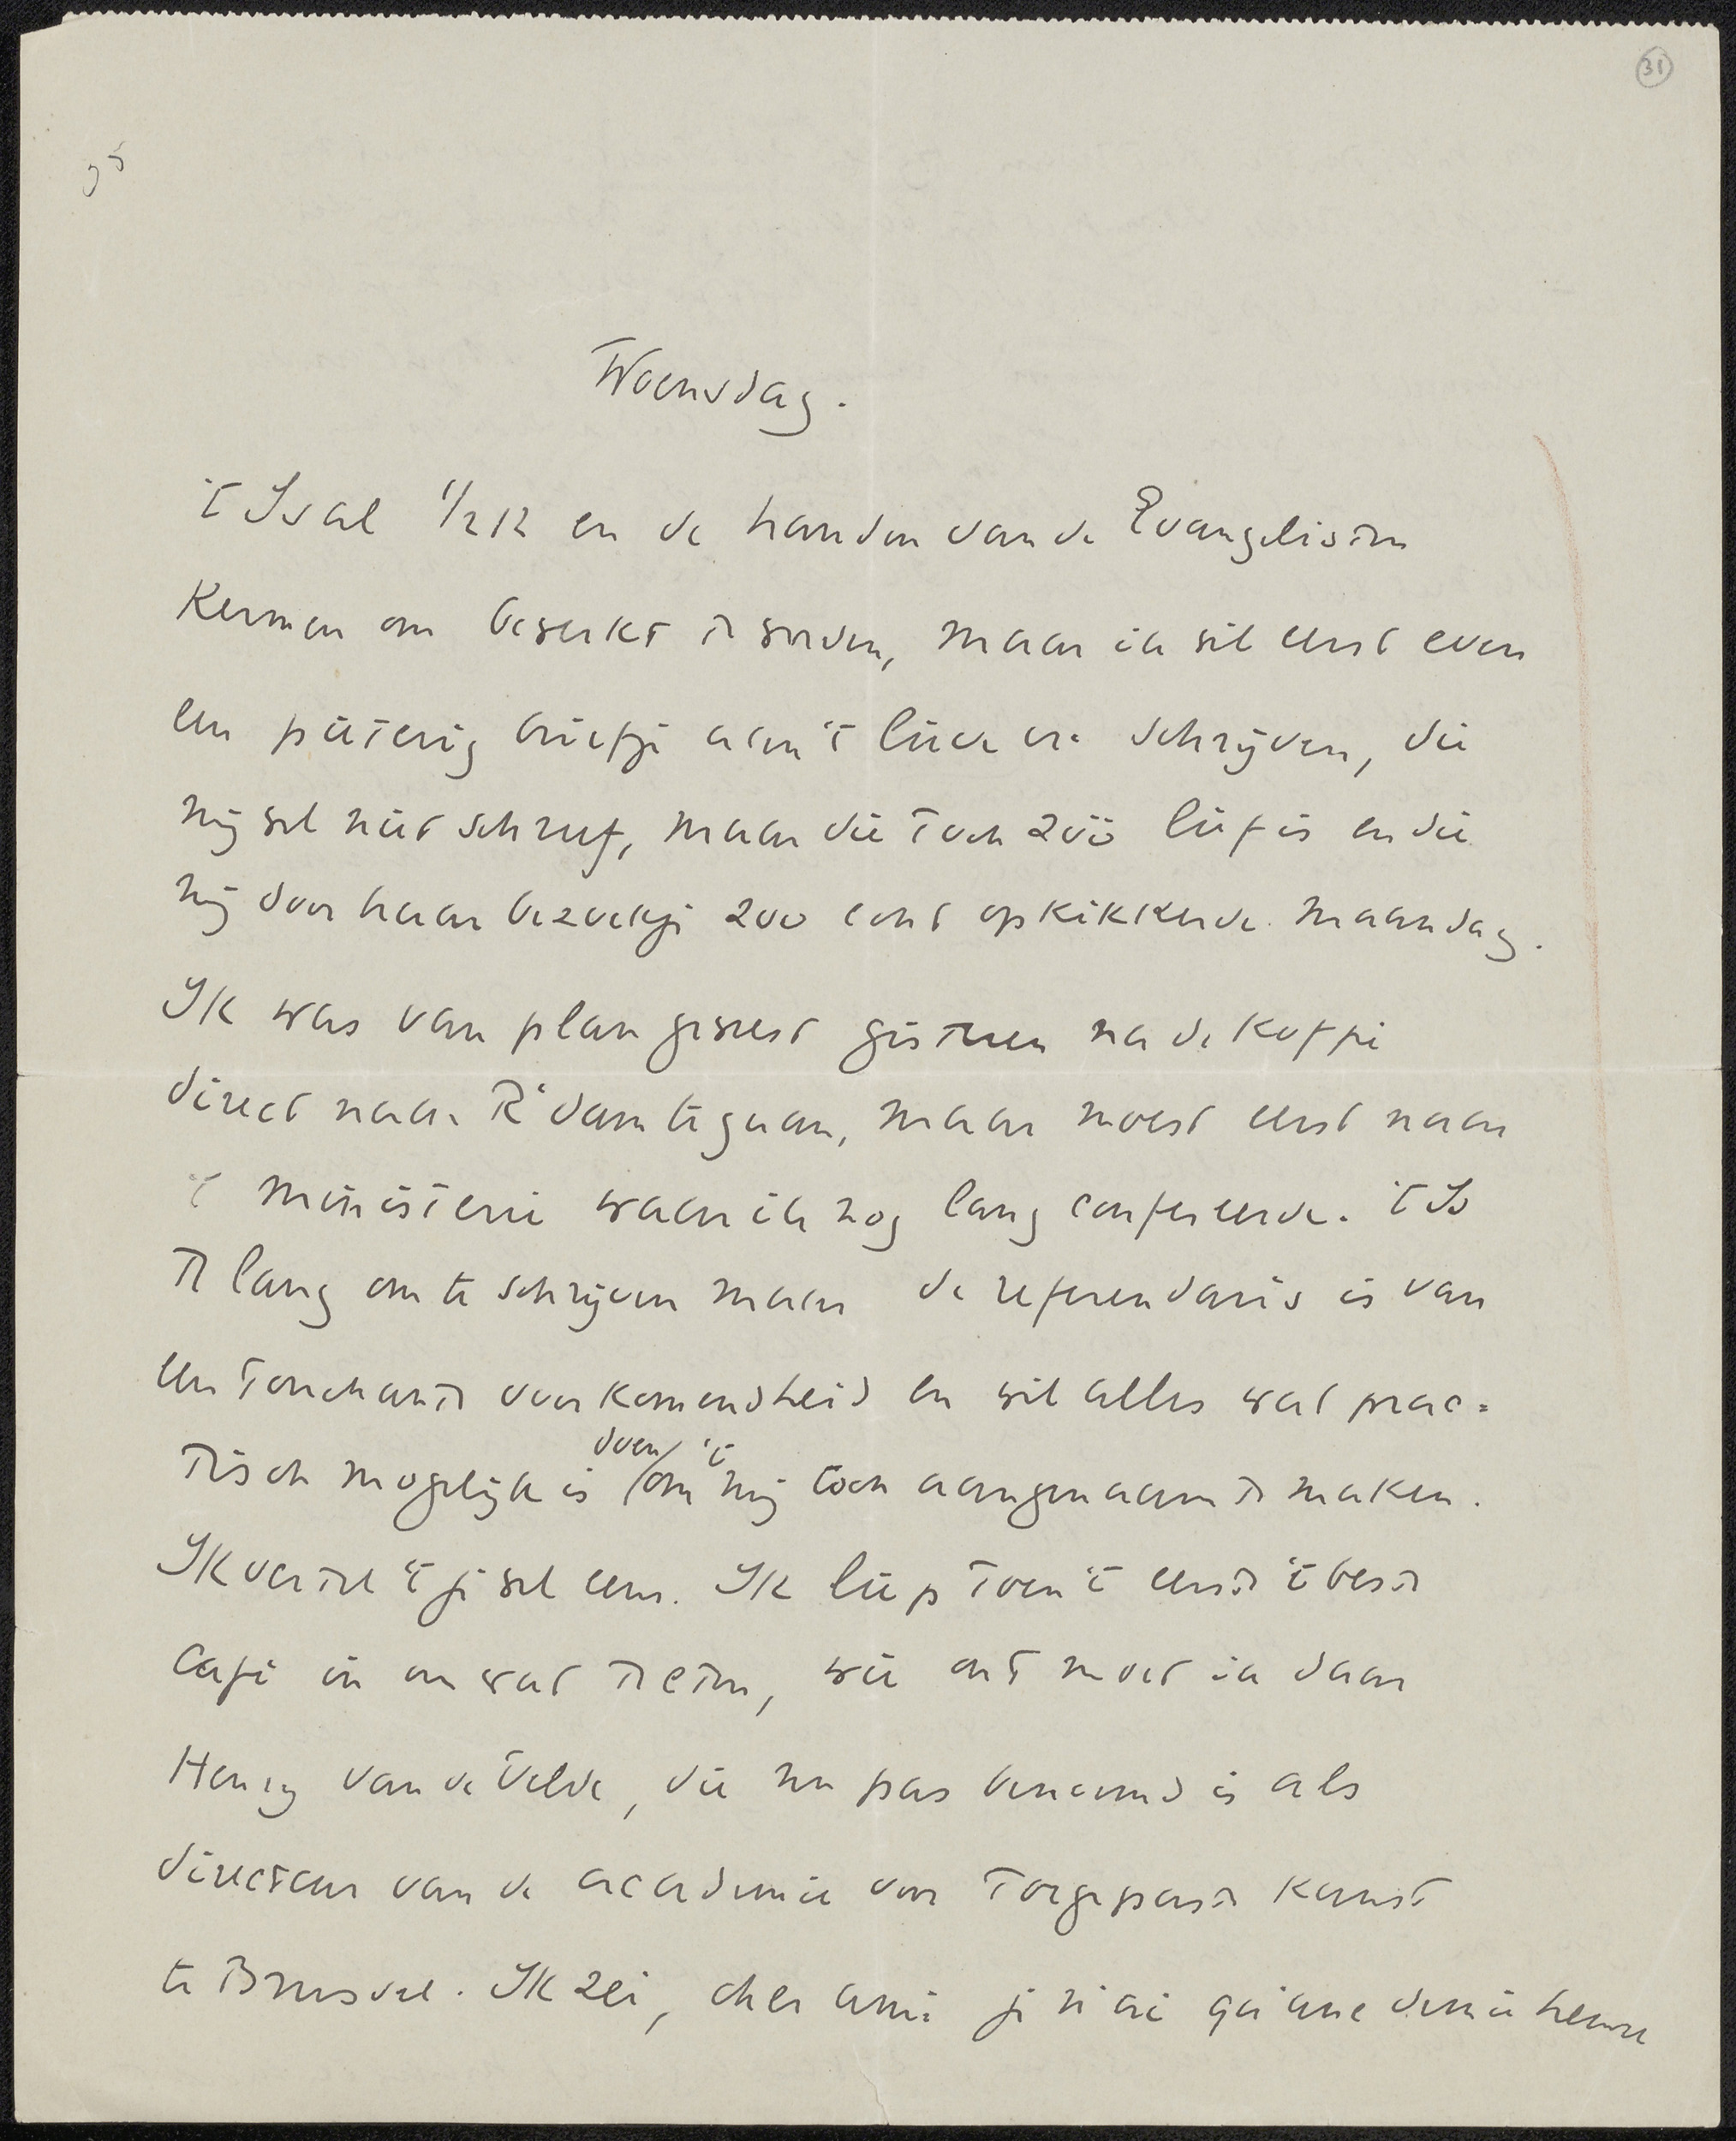 31
95
Woensdag.
't Is al 1/2 12 en de handen van de Evangelisten
Kermen om bewerkt te worden, maar ik wil eerst even
een pieterig briefje aan 't lieve er schrijven, die
mij wel niet schreef, maar die toch zóó lief is en die
mij door haar bezoekje zoo echt opkikkerde Maandag.
Ik was van plan geweest gisteren na de koffie
direct naar R'dam te gaan, maar moest eerst naar
't Ministerie waar ik nog lang confereerde. 't Is
te lang om te schrijven maar de referendaris is van
een touchante voorkomendheid en wil alles wat prac=
tisch mogelijk is doen om 't mij toch aangenaam te maken.
Ik vertel 't je wel eens. Ik liep toen 't eerste 't beste
Café in om wat te eten, wie ont moet ik daar
Henry van de Velde, die nu pas benoemd is als
directeur van de academie voor Toegepaste Kunst
te Brussel. Ik zei, cher ami je n'ai qu'une demie heure